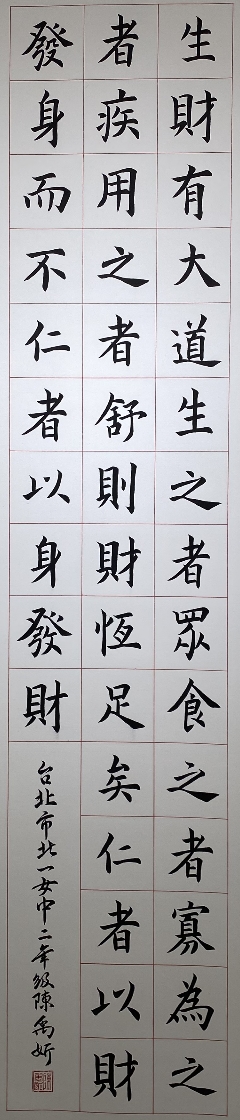 生財有大道生之者眾食之者寡為之
者疾用之者舒則財恆足矣仁者以財
發身而不仁者以身發財
台北市北一女中二年級陳禹妡